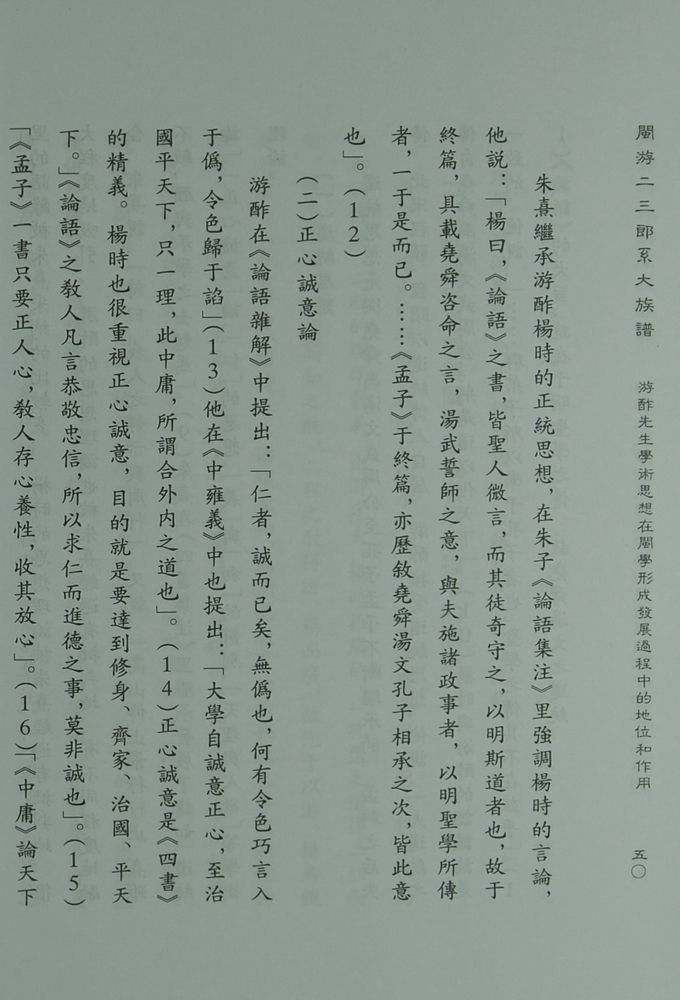 閩游二三郎系大族譜 游酢先生學術思想在閩學形成發展過程中的地位和作用 五〇
朱熹繼承游酢楊時的正統思想，在朱子《論語集注》里強調楊時的言論，
他說：「楊曰，《論語》之書，皆聖人微言，而其徒奇守之，以明斯道者也，故于
終篇，具載堯舜咨命之言，湯武誓師之意，與夫施諸政事者，以明聖學所傳
者，一于是而已。……《孟子》于終篇，亦歷敘堯舜湯文孔子相承之次，皆此意
也」。（12）
（二）正心誠意論
游酢在《論語雜解》中提出：「仁者，誠而已矣，無僞也，何有令色巧言入
于僞，令色歸于諂」（13）他在《中雍義》中也提出：「大學自誠意正心，至治
國平天下，只一理，此中庸，所謂合外内之道也」。（14）正心誠意是《四書》
的精義。楊時也很重視正心誠意，目的就是要達到修身、齊家、治國、平天
下。」《論語》之教人凡言恭敬忠信，所以求仁而進德之事，莫非誠也」。（15）
「《孟子》一書只要正人心，教人存心養性，收其放心」。（16）「《中庸》論天下